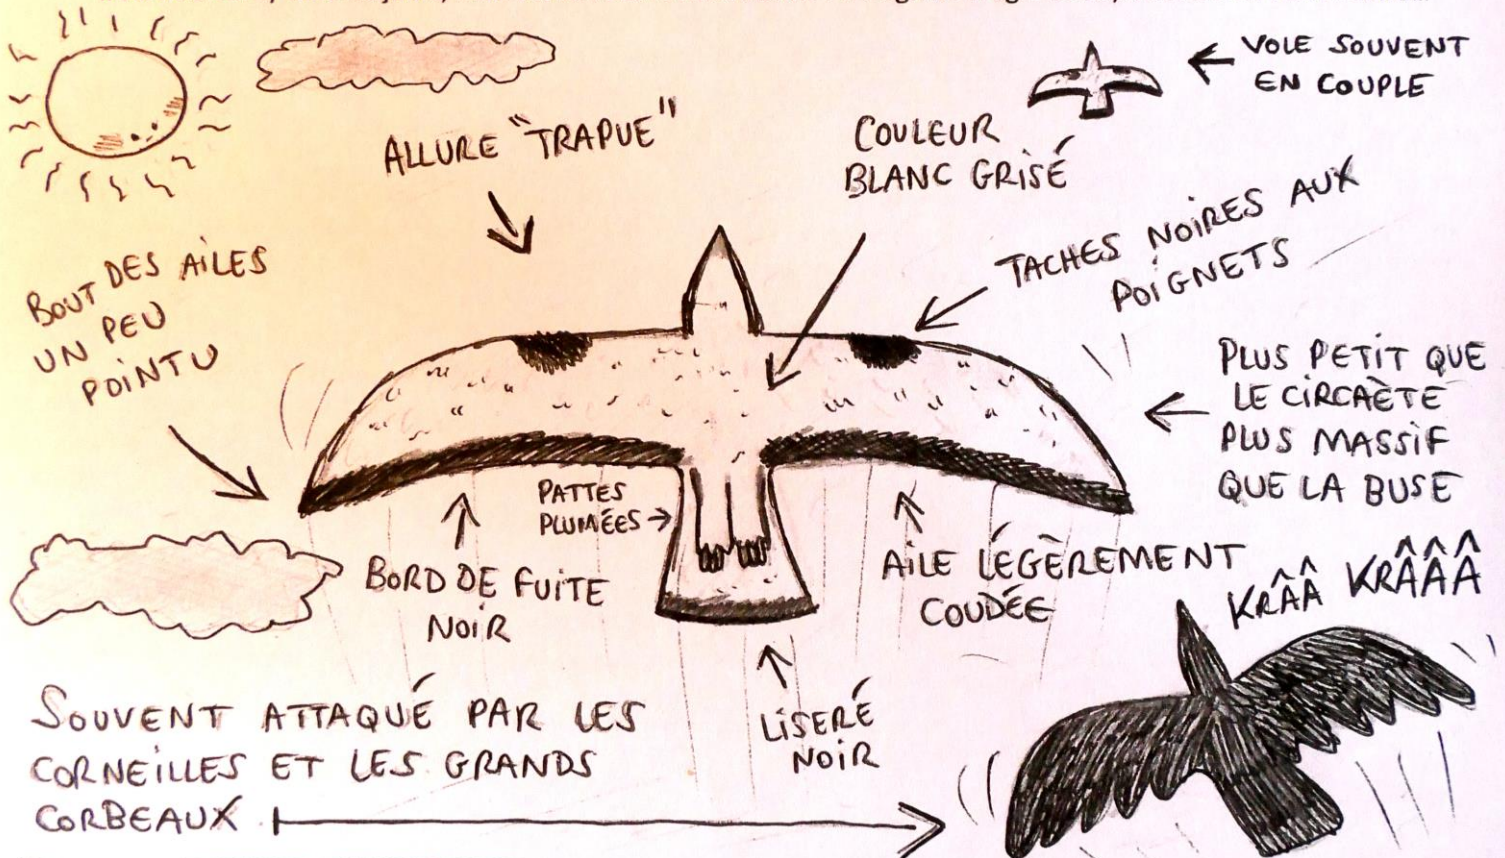 VOLE SOUVENT
EN COUPLE
ALLURE "TRAPUE"
COULEUR
BLANC GRISÉ
TACHES NOIRES AUX
POIGNETS
BOUT DES AILES
UN PEU
POINTU
PLUS PETIT QUE
LE CIRCAÈTE
PLUS MASSIF
QUE LA BUSE
PATTES
PLUMÉES
BORD DE FUITE
NOIR
AILE LÉGÈREMENT
COUDÉE
KRÂÂ KRÂÂÂ
LISERÉ
NOIR
SOUVENT ATTAQUÉ PAR LES
CORNEILLES ET LES GRANDS
CORBEAUX